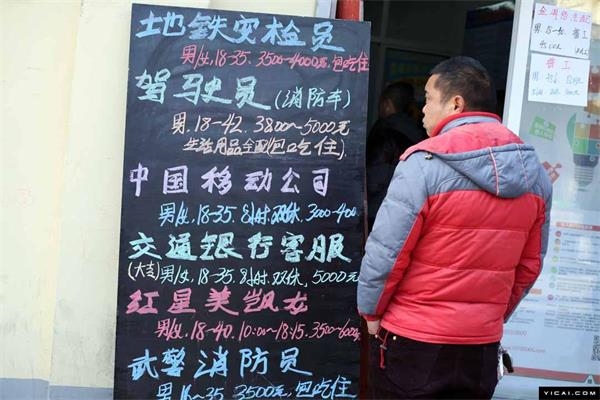 地铁安检员
男/女.18-35.3500-4000元包吃住
驾驶员(消防车)
男.18-42.3800~5000元
生活用品全配(包吃住)
中国移动公司
男/女.18-35.8小时.双休.3000-400
交通银行客服
(大专)男/女.18-35.8小时.双休,5000元
红星美凯龙
男/女.18-40.10:00~18:15.3500~600
武警消防员
16~35.3500元.包吃住
YICAI.COM